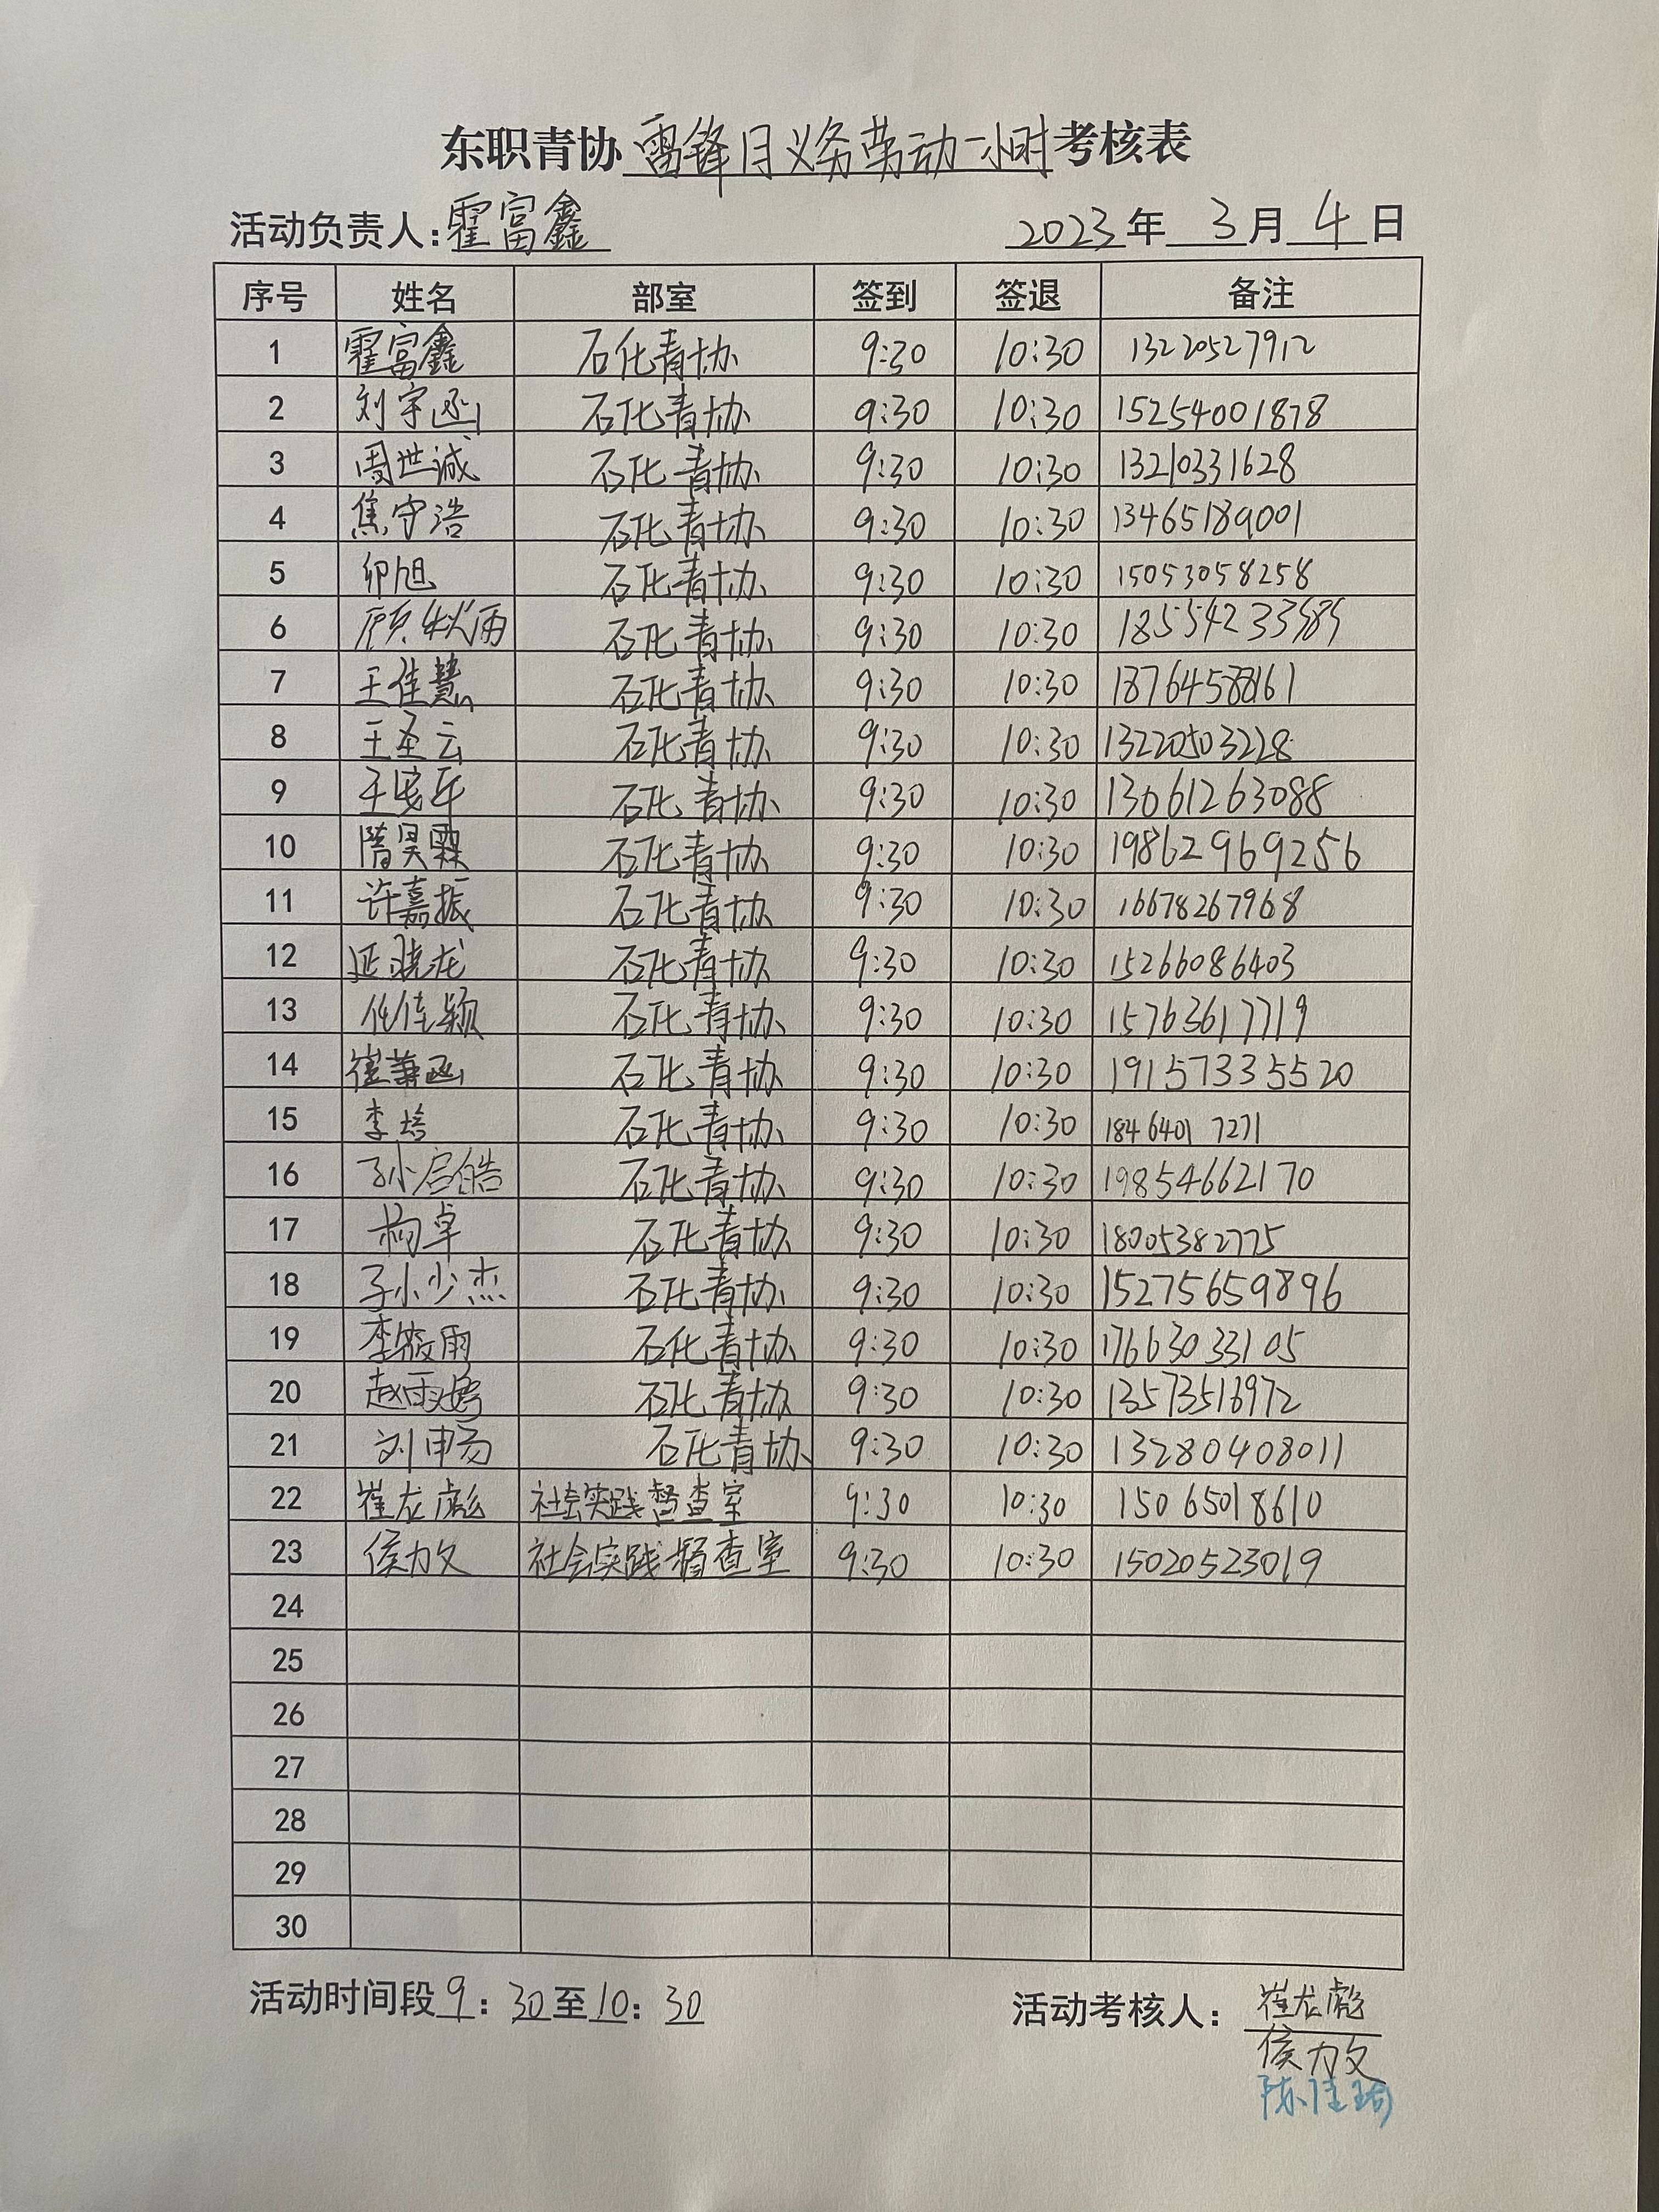 东职青协雷锋月义务劳动一小时考核表
活动负责人:霍富鑫 2023年3月4日
序号 姓名 部室 签到 签退 备注
1 霍富鑫 石化青协 9:30 10:30 13220527912
2 刘宇函 石化青协 9:30 10:30 15254001878
3 周世诚 石化青协 9:30 10:30 13210331628
4 焦守浩 石化青协 9:30 10:30 13465189001
5 石化青协 9:30 10:30 15053058258
6 顾秋雨 石化青协 9:30 10:30 18554233585
7 王佳慧 石化青协 9:30 10:30 18764588161
8 王圣云 石化青协 9:30 10:30 13220503228
9 石化青协 9:30 10:30 13061263088
10 隋昊霖 石化青协 9:30 10:30 19862969256
11 许嘉振 石化青协 9:30 10:30 16678267968
12 延晓龙 石化青协 9:30 10:30 15266086403
13 任佳颖 石化青协 9:30 10:30 15763617719
14 石化青协 9:30 10:30 19157335520
15 李培 石化青协 9:30 10:30 18464017271
16 孙启皓 石化青协 9:30 10:30 19854662170
17 杨卓 石化青协 9:30 10:30 18005382775
18 孙少杰 石化青协 9:30 10:30 15275659896
19 李筱雨 石化青协 9:30 10:30 17663033105
20 石化青协 9:30 10:30 13573516972
21 刘申易 石化青协 9:30 10:30 13280408011
22 崔龙彪 社会实践督查室 9:30 10:30 15065018610
23 侯力文 社会实践督查室 9:30 10:30 15020523019
24
25
26
27
28
29
30
活动时间段9:30至10:30 活动考核人:崔龙彪
侯力文
陈佳琦